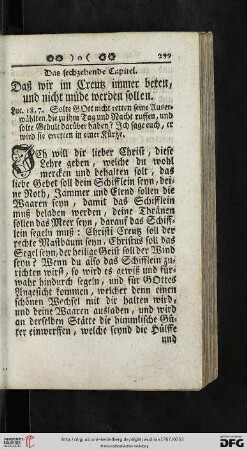 )o( 299
Das sechzehende Capitel.
Daß wir im Creutz immer beten,
und nicht müde werden sollen.
Luc. 18. 7. Solte GOtt nicht retten seine Auser-
wählten, die zu ihm Tag und Nacht ruffen, und
solte Gedult darüber haben? Ich sage euch, er
wird sie erretten in einer Kürtze.
ICh will dir lieber Christ, diese
Lehre geben, welche du wohl
mercken und behalten solt, das
liebe Gebet soll dein Schifflein seyn, dei-
ne Noth, Jammer und Elend sollen die
Waaren seyn, damit das Schifflein
muß beladen werden, deine Thränen
sollen das Meer seyn, darauf das Schiff-
lein segeln muß: Christi Creutz soll der
rechte Mastbaum seyn, Christus soll das
Segel seyn, der heilige Geist soll der Wind
seyn? Wenn du also das Schifflein zu-
richten wirst, so wird es gewiß und für-
wahr hindurch segeln, und für GOttes
Angesicht kommen, welcher denn einen
schönen Wechsel mit dir halten wird,
und deine Waaren ausladen, und wird
an derselben Stätte die himmlische Gü-
ter einwerffen, welche seynd die Hülffe
und
UNIVERSITÄTS-BIBLIOTHEK HEIDELBERG
© Universitätsbibliothek Heidelberg
DFG